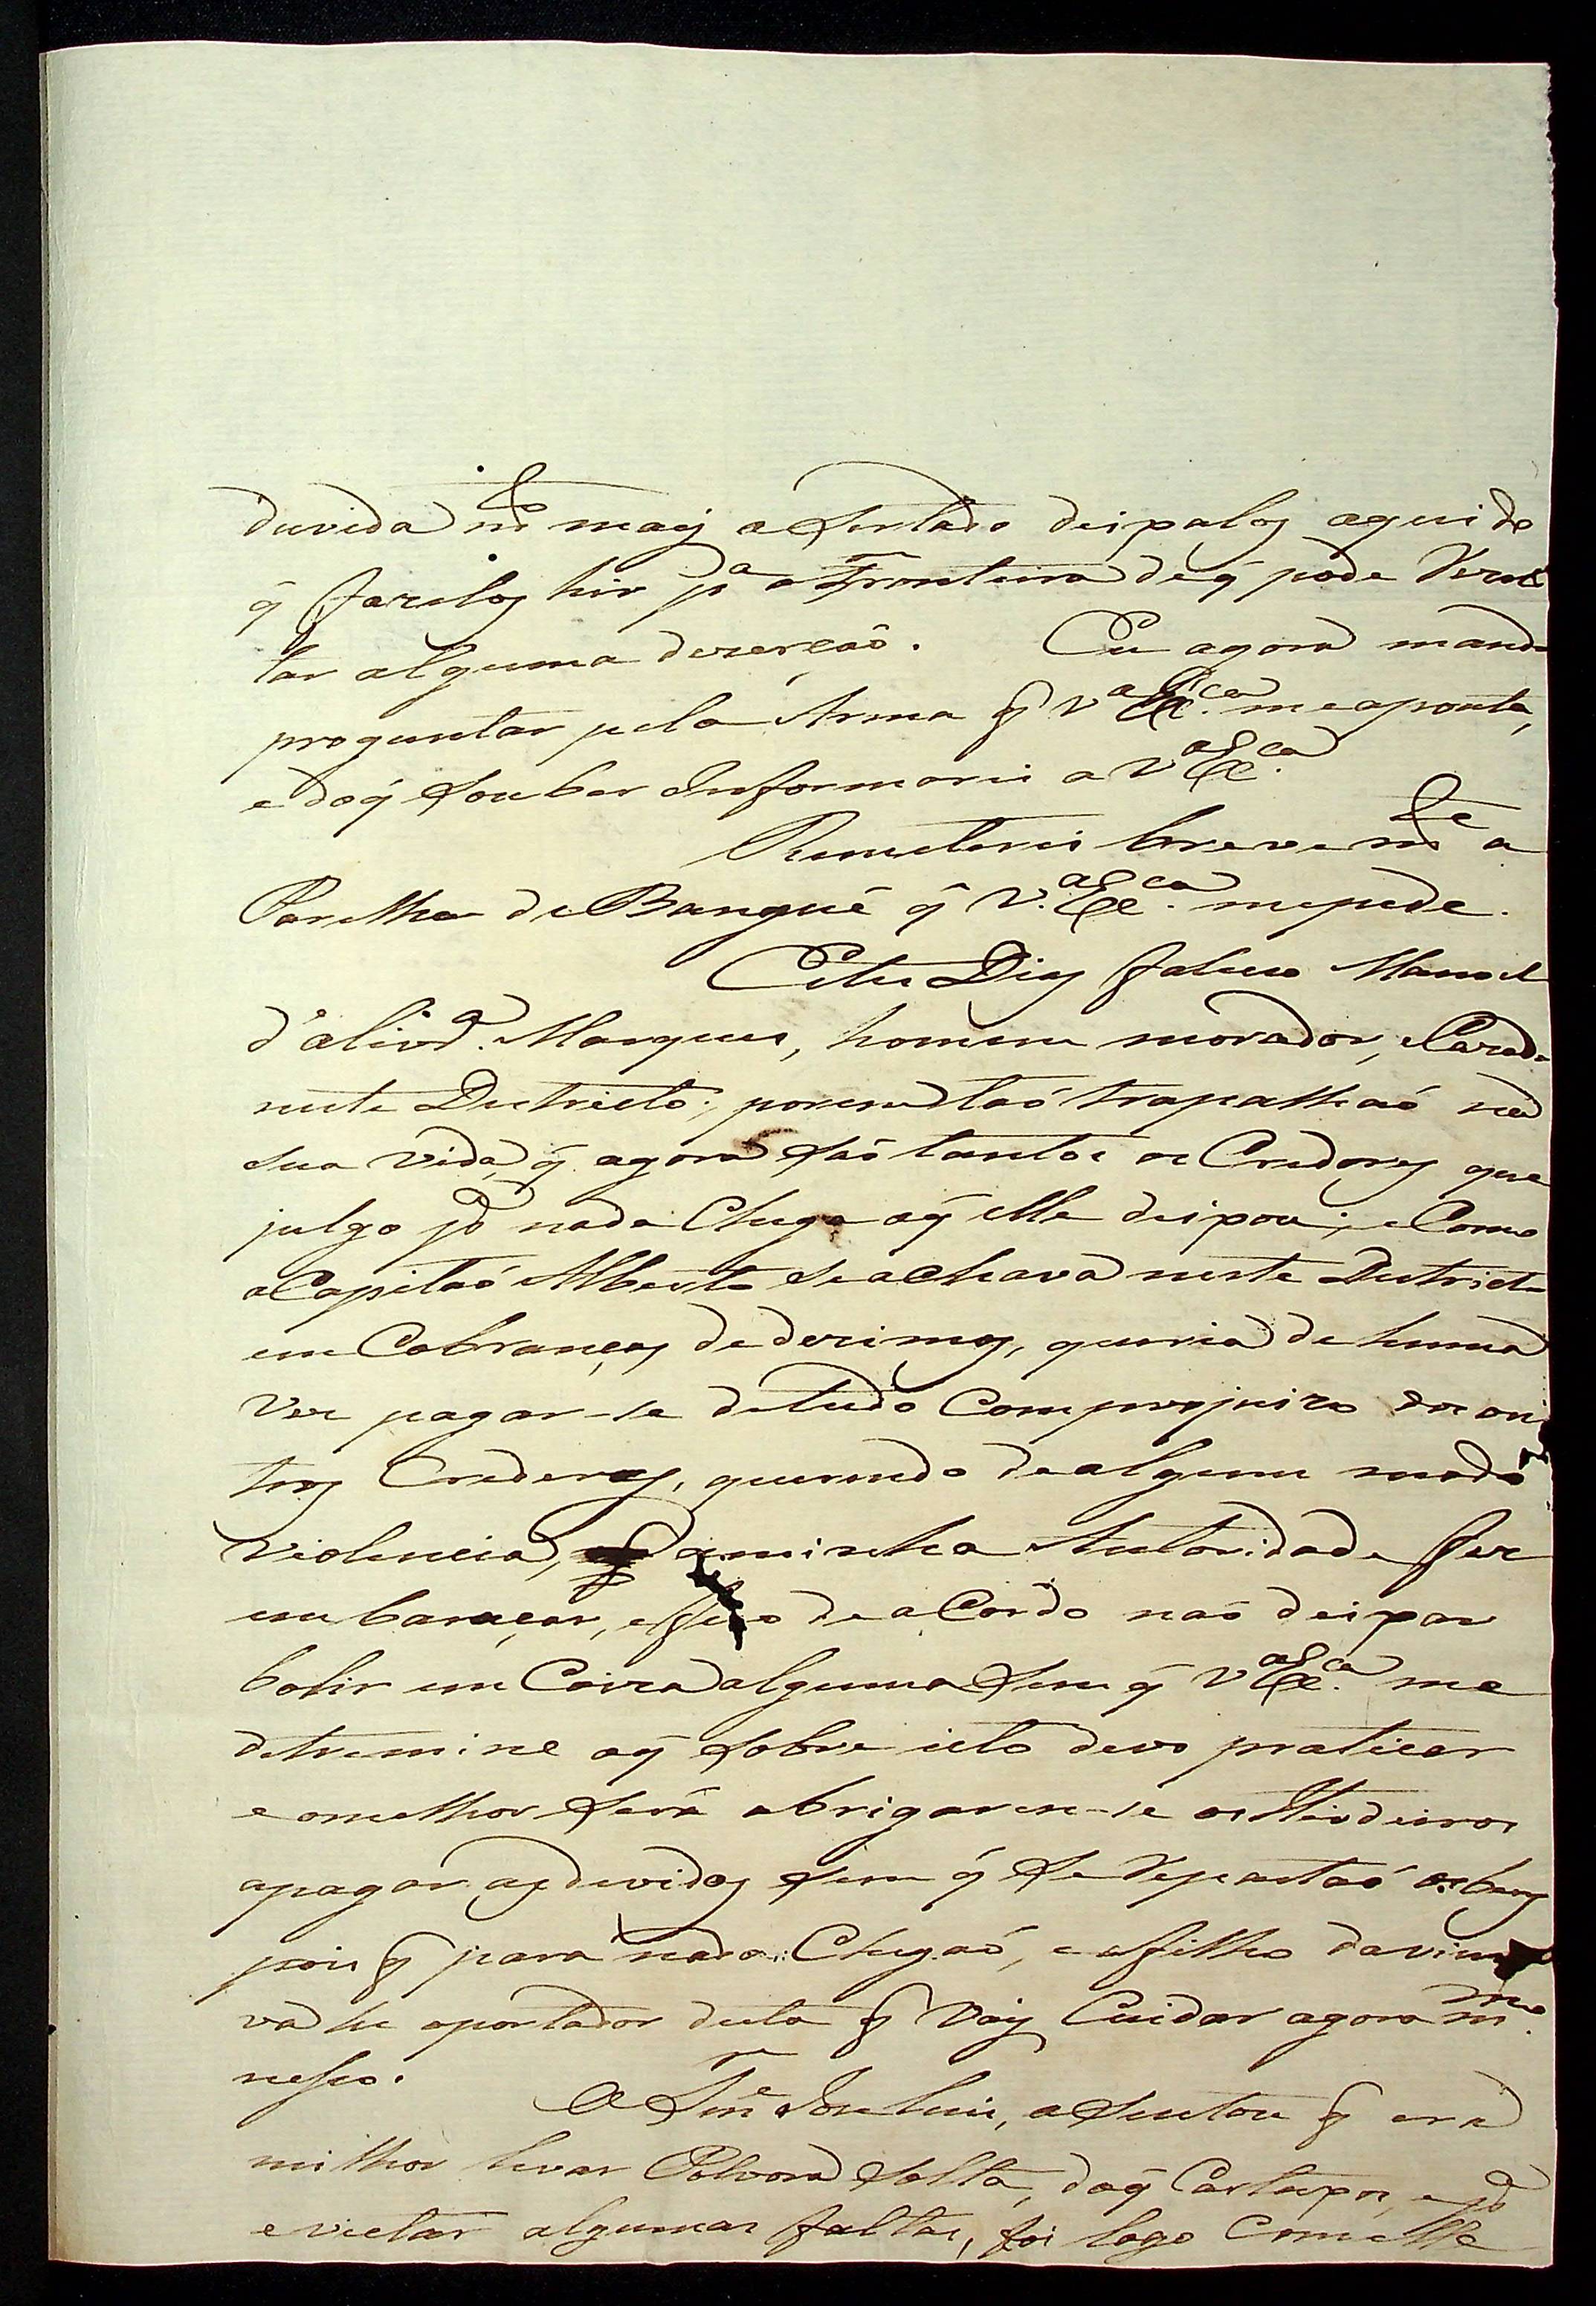 duvida mto mais asertado deixalos aquido
q̃ farelos hir pa a Fronteira deq̃ pode Verel
tar alguma dezerçaõ. Eu agora mando
proguntar pela Arma q̃ Va Exca. meaponta,
e doq̃ Souber Informarei a Va Exca.
Remeterei brevemte a
Parelha de Bangué q̃ V.a Exca. mepede.
Este Dias faleceo Manoel
d'alivra. Marques, homem morador, eCazado
neste Destricto; porem taõ trapalhaõ na
sua vida, q̃ agora Saõ tantos os Credores que
julgo pa nada Chega oq̃ elle deixou; eComo
oCapitaõ Alberto Seachava neste Destricto
em Cobranças dedezimos, queria dehuma
Vez pagar-se detudo Comprojuizo dos ou
tros Crederes, querendo dealgum modo
Violencia, aminha Autoridade fez
embaraçar, efico deaCordo naõ deixar
bolir em Coiza alguma Sem q̃ Va Exca. me
detremine oq̃ Sobre isto devo praticar
eomelhor Será obrigarem-se os Herdeiros
apagar asdevidas Sem q̃ Se Repartaõ osbens
pois q̃ para nada Chegaõ, e ofilho daviu
va he oportador desta q̃ Vai Cuidar agora mmo.
nesso.
O Tene Joze Luis, asentou q̃ era
milhor levar Polvora Solta, doq̃ Cartuxos, epa
evietar algumas faltas, foi logo Comelle